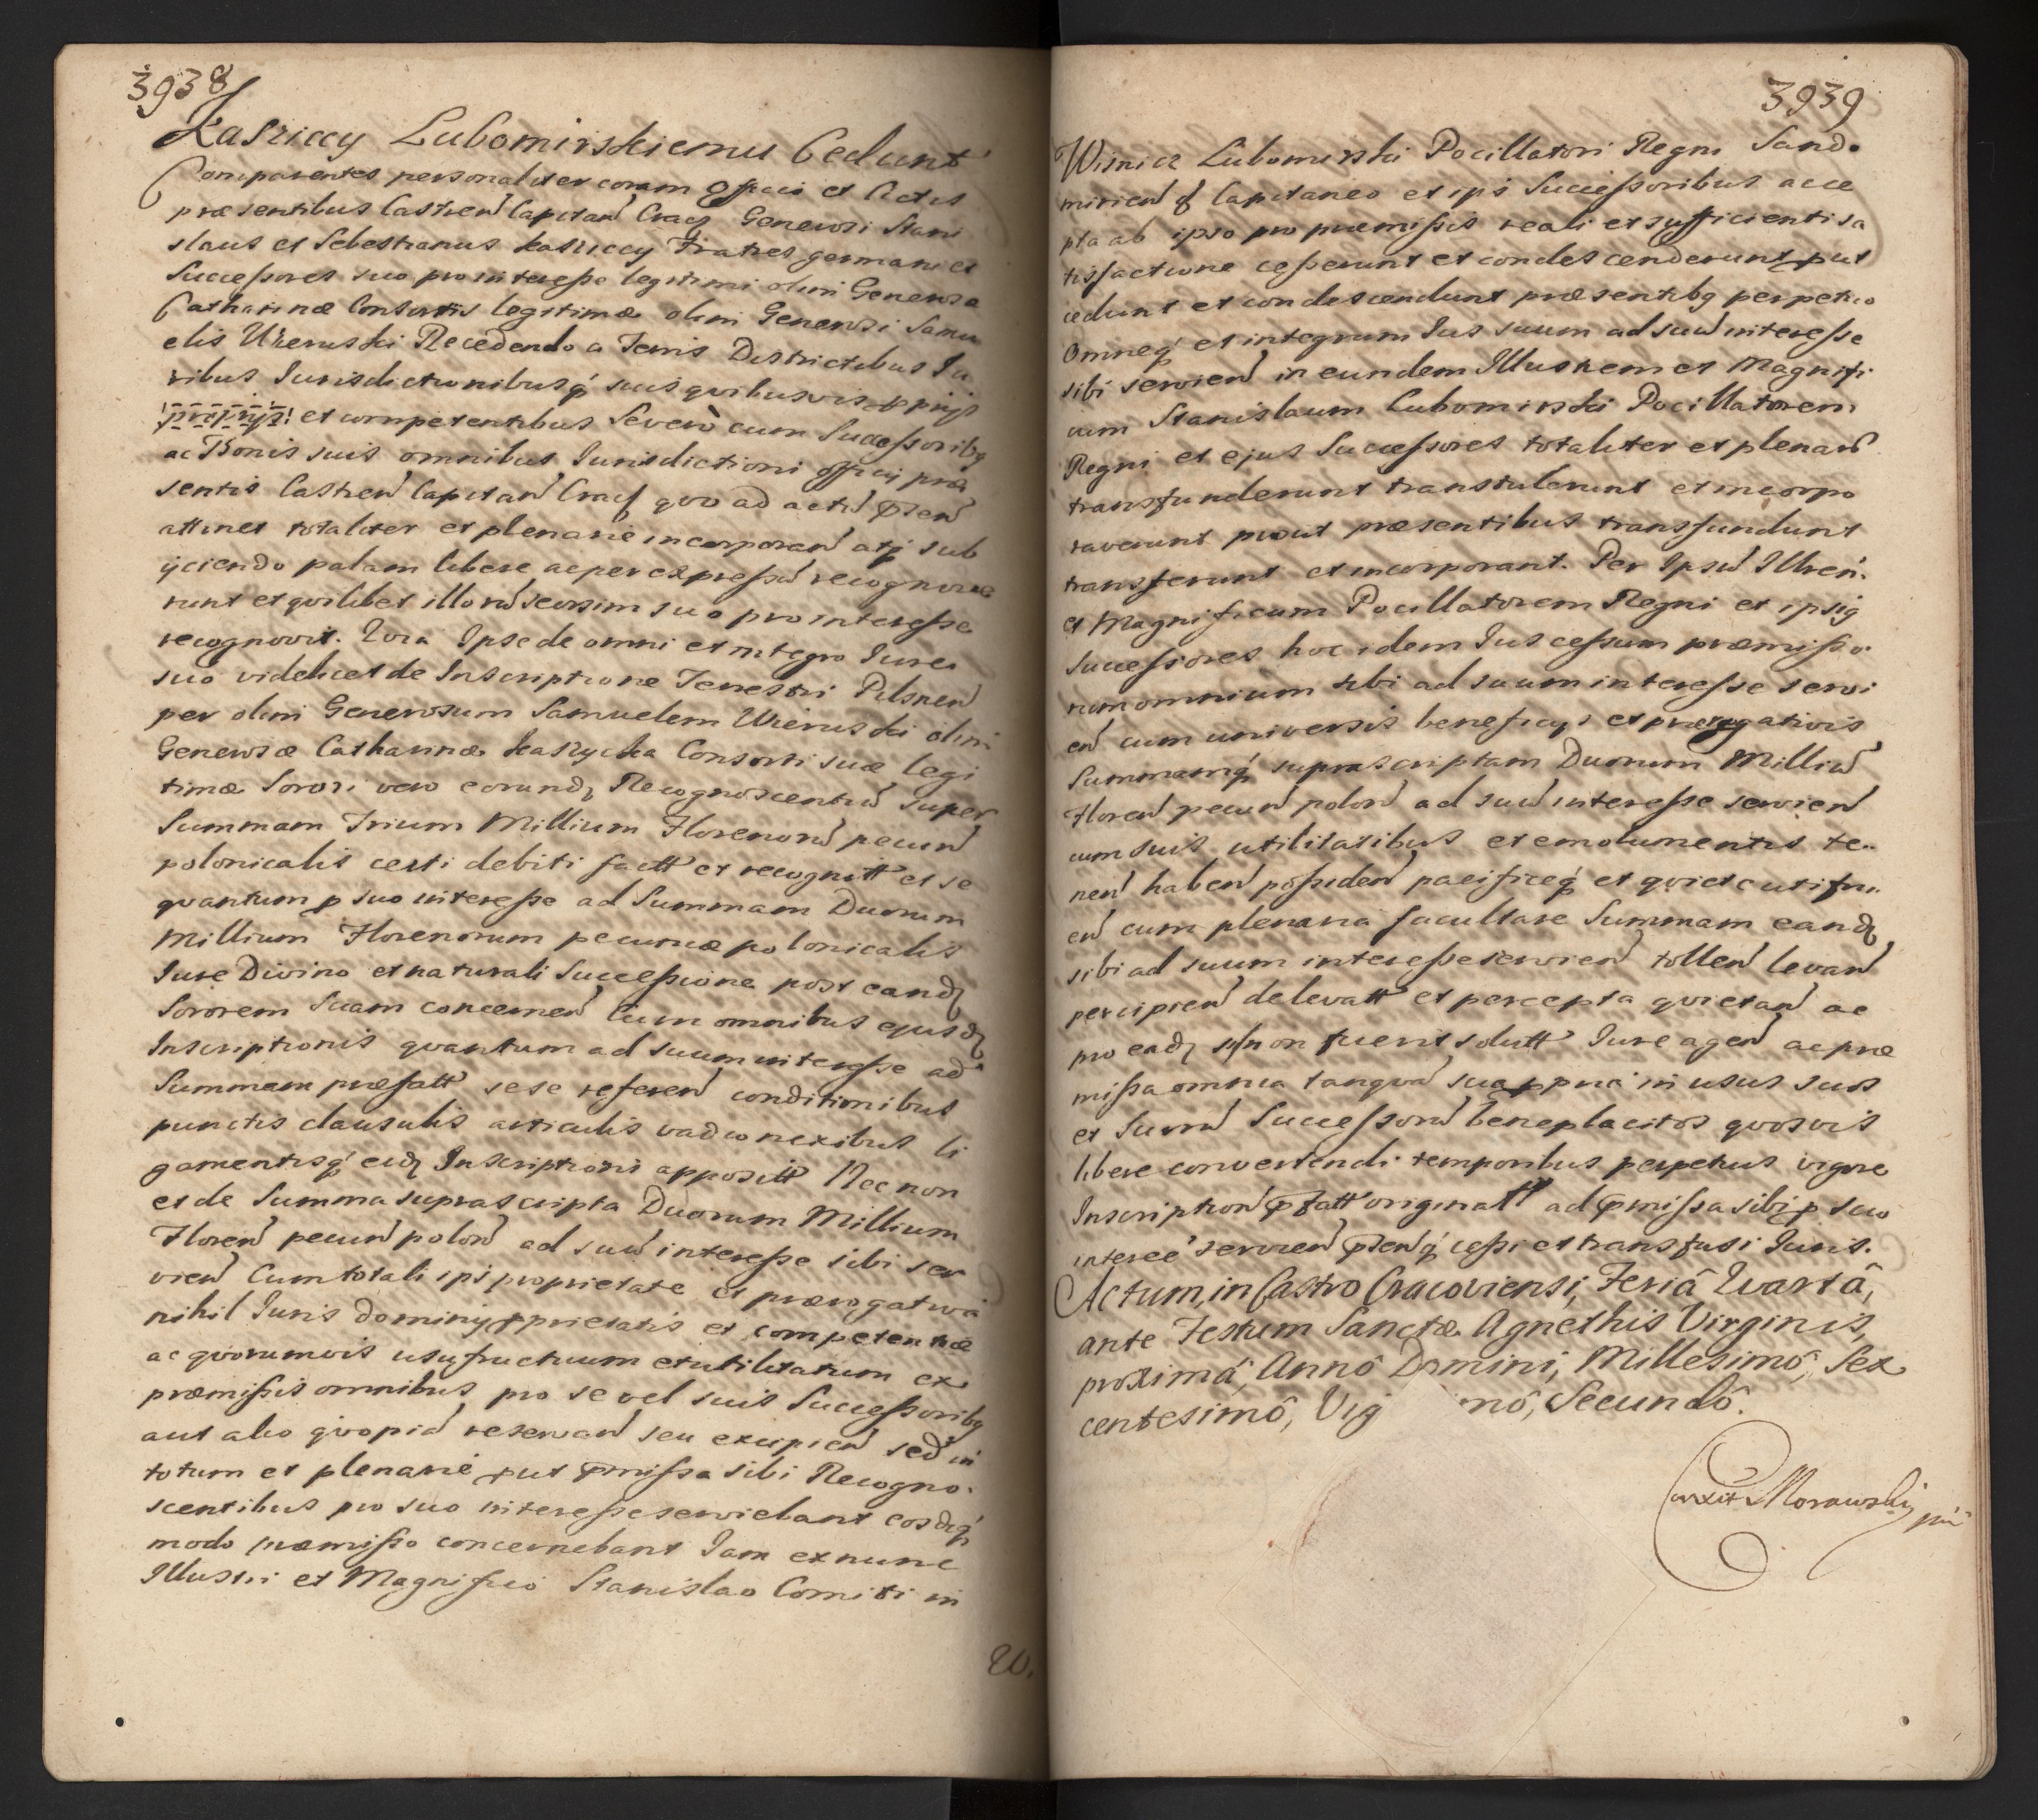 3938
Kasziccy Lubomirskiemu Cedunt
Comparentes personaliter coram Officio et Actis
præsentibus Castren Capitan Crac Generosi Stani
slaus et Sebestianus Kasziccy Fratres germani et
Successores suo pro interesse legitimi olim Generosa
Catharinæ Consortis legitimæ olim Generosi Samu
elis Recedendo a Terris Districtibus Iu
ribus Iurisdictionibusq suis quibusvis pprijs
proprijs et competentibus Severo cum Successoribq
ac Bonis suis omnibus Iurisdictioni officij præ
sentis Castren Capitan Crac quo ad actu pñen
attinet totaliter et plenarie incorporan atq sub
ijciendo palam libere ac per expressu recognove
runt et quilibet illoru seorsim suo pro interesse
recognovit. Quia Ipse de omni et integro Iure
suo videlicet de Inscriptione Terrestri Pilsnen
per olim Generosum Samuelem olim
Generosæ Catharinæ Kaszycka Consorti suæ legi
timæ Sorori vero eorundq Recognoscentiu super
Summam Trium Millium Florenoru pecun
polonicalis certi debiti fact et recognitt et se
quantum p suo interesse ad Summam Duorum
Millium Florenorum pecuniæ polonicalis
Iure Divino et naturali Successione post eandq
Sororem Suam concernen Cum omnibus ejusdq
Inscriptionis quantum ad suum interesse ad
Summam præfatt sese referen conditionibus
punctis clausulis articulis vad connexibus li
gamentisq eidq Inscriptioni apposit Nec non
et de Summa suprascripta Duorum Millium
Floren pecun polon ad suu interesse sibi ser
vien Cum totali ipi proprietate et prærogativa
nihil Iuris dominij pprietatis et competentiæ
ac quorumvis usufructuum et utilitatum ex
præmissis omnibus pro se vel suis Successoribq
aut alio quopia reservan seu excipien sed in
totum et plenarie put pmissa sibi Recogno
scentibus pro suo interesse serviebant eosdq
modo præmisso concernebant Iam ex nunc
Illustri et Magnifico Stanislao Comiti in
20.
3939
Wisnicz Lubomirski Pocillatori Regni Sando
mirien Capitaneo et ipi Successoribus acce
pta ab ipso pro præmissis reali et sufficienti sa
tisfactione cesserunt et condescenderunt put
cedunt et condescendunt præsentibq perpetuo
Omneq et integrum Ius suum ad suu interesse
sibi servien in eundem Illustrem et Magnifi
cum Stanislaum Lubomirski Pocillatorem
Regni et ejus Successores totaliter et plenarie
transfunderunt transtulerunt et incorpo
raverunt prout præsentibus transfundunt
transferunt et incorporant. Per Ipsu Illren.
et Magnificum Pocillatorem Regni et ipsiq
Successores hoc idem Ius cessum præmisso
rum omnium sibi ad suum interesse servi
en cum universis beneficijs et prærogativis
Summamq suprascriptam Duorum Milliu
Floren pecun polon ad suu interesse servien
cum suis utilitatibus et emolumentis te
nen haben possiden pacificeq et quiete uti fru
en cum plenaria facultate Summam eandq
sibi ad suum interesse servien tollen levan
percipien de levatt et percepta quietan ac
pro eadq si non fuerit solutt Iure agen ac præ
missa omnia tanqua sua ppria in usus suos
et Suoru Successoru beneplacitos quosvis
libere convertendi temporibus perpetuis vigore
Inscription pfatt originatt ad pmissa sibi p suo
interee servien pñenq cessi et transfusi Iuris.
Actum, in Castro Cracoviensi, Feriâ Quartâ,
ante Festum Sanctæ Agnethis Virginis,
proximâ, Annô Domini, Millesimô, Sex
centesimô, Vig mô, Secundô.
Morawski